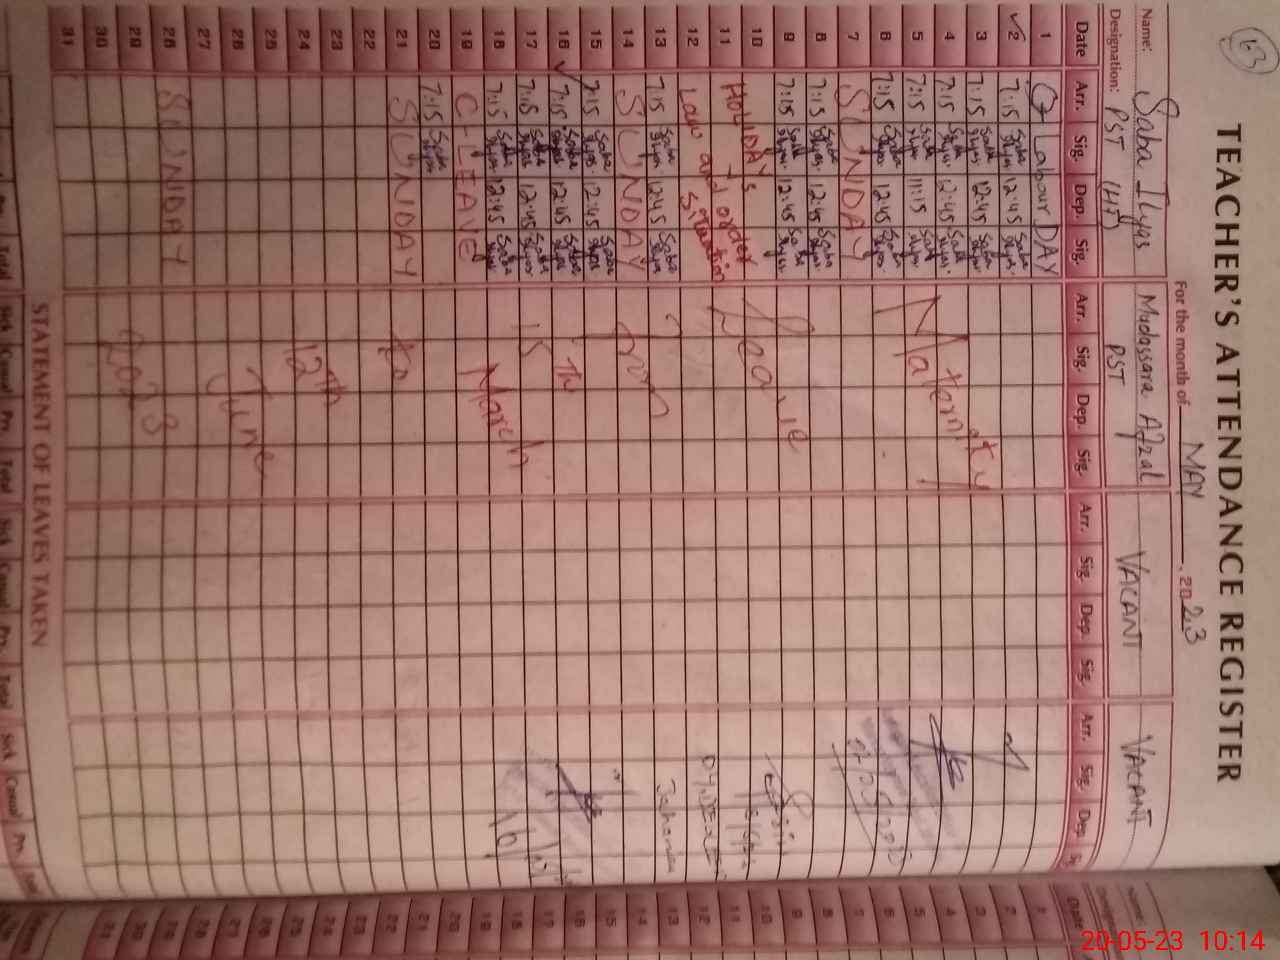 63
TEACHER'S ATTENDANCE REGISTER
For the month of MAY, 2023
Name: Saba Ilyas Mudassara Afzal VACANT VACANT
Designation: PST (HT) PST
Date Arr. Sig. Dep. Sig. Arr. Sig. Dep. Sig. Arr. Sig. Dep. Sig. Arr. Sig. Dep.
1 Labour DAY
2 7:15 Saba Ilyas 12:45 Saba Ilyas
3 7:15 Saba Ilyas 12:45 Saba Ilyas
4 7:15 Saba Ilyas 12:45 Saba Ilyas
5 7:15 Saba Ilyas 11:15 Saba Ilyas
6 7:15 Saba Ilyas 12:45 Saba Ilyas
7 SUNDAY
8 7:15 Saba Ilyas 12:45 Saba Ilyas
9 7:15 Saba Ilyas 12:45 Saba Ilyas
10
11 HOLIDAYS
12 Law and order situation
13 7:15 Saba Ilyas 12:45 Saba Ilyas
14 SUNDAY
15 7:15 Saba Ilyas 12:45 Saba Ilyas
16 7:15 Saba Ilyas 12:45 Saba Ilyas
17 7:15 Saba Ilyas 12:45 Saba Ilyas
18 7:15 Saba Ilyas 12:45 Saba Ilyas
19 C-LEAVE
20 7:15 Saba Ilyas
21 SUNDAY
22
23
24
25
26
27
28 SUNDAY
29
30
31
Maternity
Leave
From
15th
March
to
12th
June
2023
STATEMENT OF LEAVES TAKEN
Total Sick Casual Prv. Total Sick Casual Prv. Total Sick Casual Prv.
20-05-23 10:14